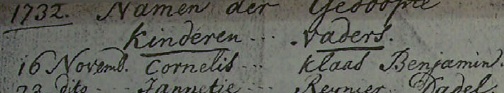 1732. Namen der Gedoopte
Kinderen... Vaders.
16 Novemb. Cornelis... Klaas Benjamins.
23 dito... Jannetie... Reynier Dadel